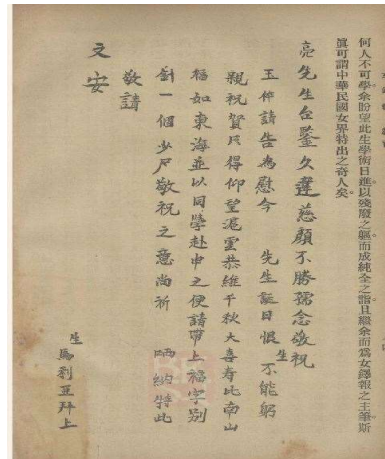 何人不可學余盼望此生學術日進以殘廢之軀而成純全之詣且繼余而爲女鐸報之主筆斯
眞可謂中華民國女界特出之奇人矣。
亮先生台鑒久違慈顏不勝孺念敬祝
玉 請告為慰今 先生誕日恨生不能躬
親祝賀只得仰望滬雲恭維千秋大喜寿比南山
福如東海並以同學赴申之便請帶上福字別
針一個少尽敬祝之意尚祈 哂納特此
敬請
文安
生馬利亞拜上